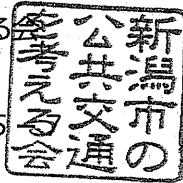 新潟市の
公共交通
を考える会